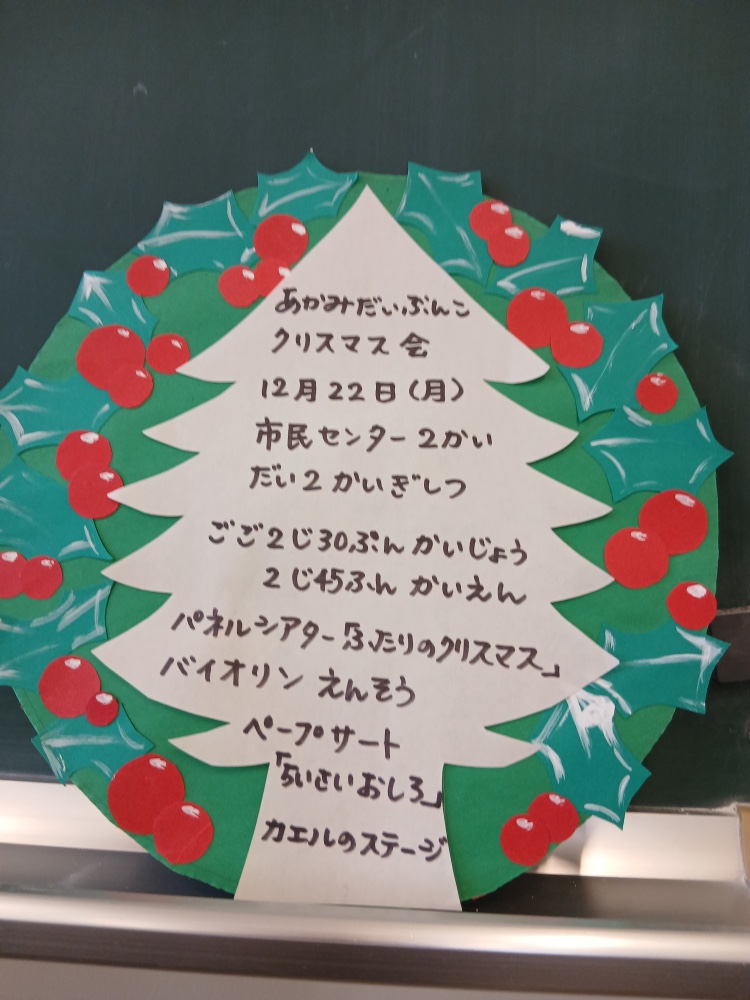 あかみだいぶんこ
クリスマス会
12月22日(月)
市民センター2かい
だい2かいぎしつ
ごご2じ30ぷんかいじょう
2じ45ふんかいえん
パネルシアター「ふたりのクリスマス」
バイオリン えんそう
ペープサート
「ちいさいおしろ」
カエルのステージ